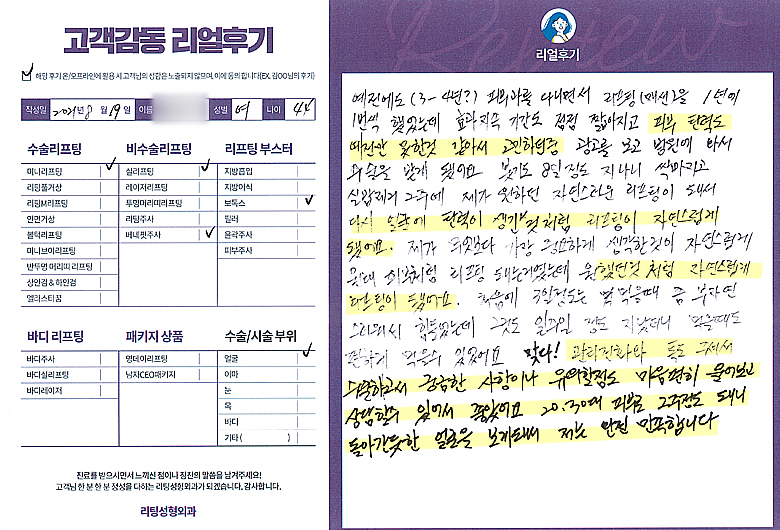 고객감동 리얼후기
해당 후기 온/오프라인에 활용 시 고객님의 성함은 노출되지 않으며, 이에 동의 합니다(EX. 김OO님의 후기)
작성일 2021년 8월 19일 이름 성별 여 나이 44
수술리프팅 비수술리프팅 리프팅 부스터
미니리프팅 실리프팅 지방흡입
리팅풀거상 레이저리프팅 지방이식
리팅M리프팅 투명머리띠리프팅 보톡스
안면거상 리팅주사 필러
볼턱리프팅 베네핏주사 윤곽주사
미니브이리프팅 피부주사
반투명 머리띠 리프팅
상안검 & 하안검
엘리스티꿈
바디 리프팅 패키지 상품 수술/시술 부위
바디주사 영데이리프팅 얼굴
바디실리프팅 남자CEO패키지 이마
바디레이저 눈
목
바디
기타 ( )
진료를 받으시면서 느끼신 점이나 칭찬의 말씀을 남겨주세요!
고객님 한 분 한 분 정성을 다하는 리팅성형외과가 되겠습니다. 감사합니다.
리팅성형외과
Review
리얼후기
예전에도 (3~4년?) 피부과를 다니면서 리프팅(레이저)을 1년에
1번씩 했었는데 효과지속 기간도 점점 짧아지고 피부 탄력도
예전만 못한것 같아서 고민하던중 광고를 보고 병원에 와서
수술을 받게 됐어요 붓기도 8일정도 지나니 싹빠지고
실밥제거 2주에 제가 원하던 자연스러운 리프팅이 돼서
다시 얼굴에 탄력이 생긴것처럼 리프팅이 자연스럽게
됐어요. 제가 무엇보다 가장 중요하게 생각한것이 자연스럽게
리프팅 되는거였는데 원했던것 처럼 자연스럽게
리프팅이 됐어요. 처음에 3일정도는 밥 먹을때 좀 부자연
스러워서 힘들었는데 그것도 일주일 정도 지났더니 먹을때도
편하게 먹을수 있었어요 맞다! 관리전화와 톡도 주셔서
수술하고서 궁금한 사항이나 유의할점도 마음편히 물어보고
상담할수 있어서 좋았어요 20.30대 피부로 2주정도 되니
돌아간듯한 얼굴을 보게되서 저는 완전 만족합니다